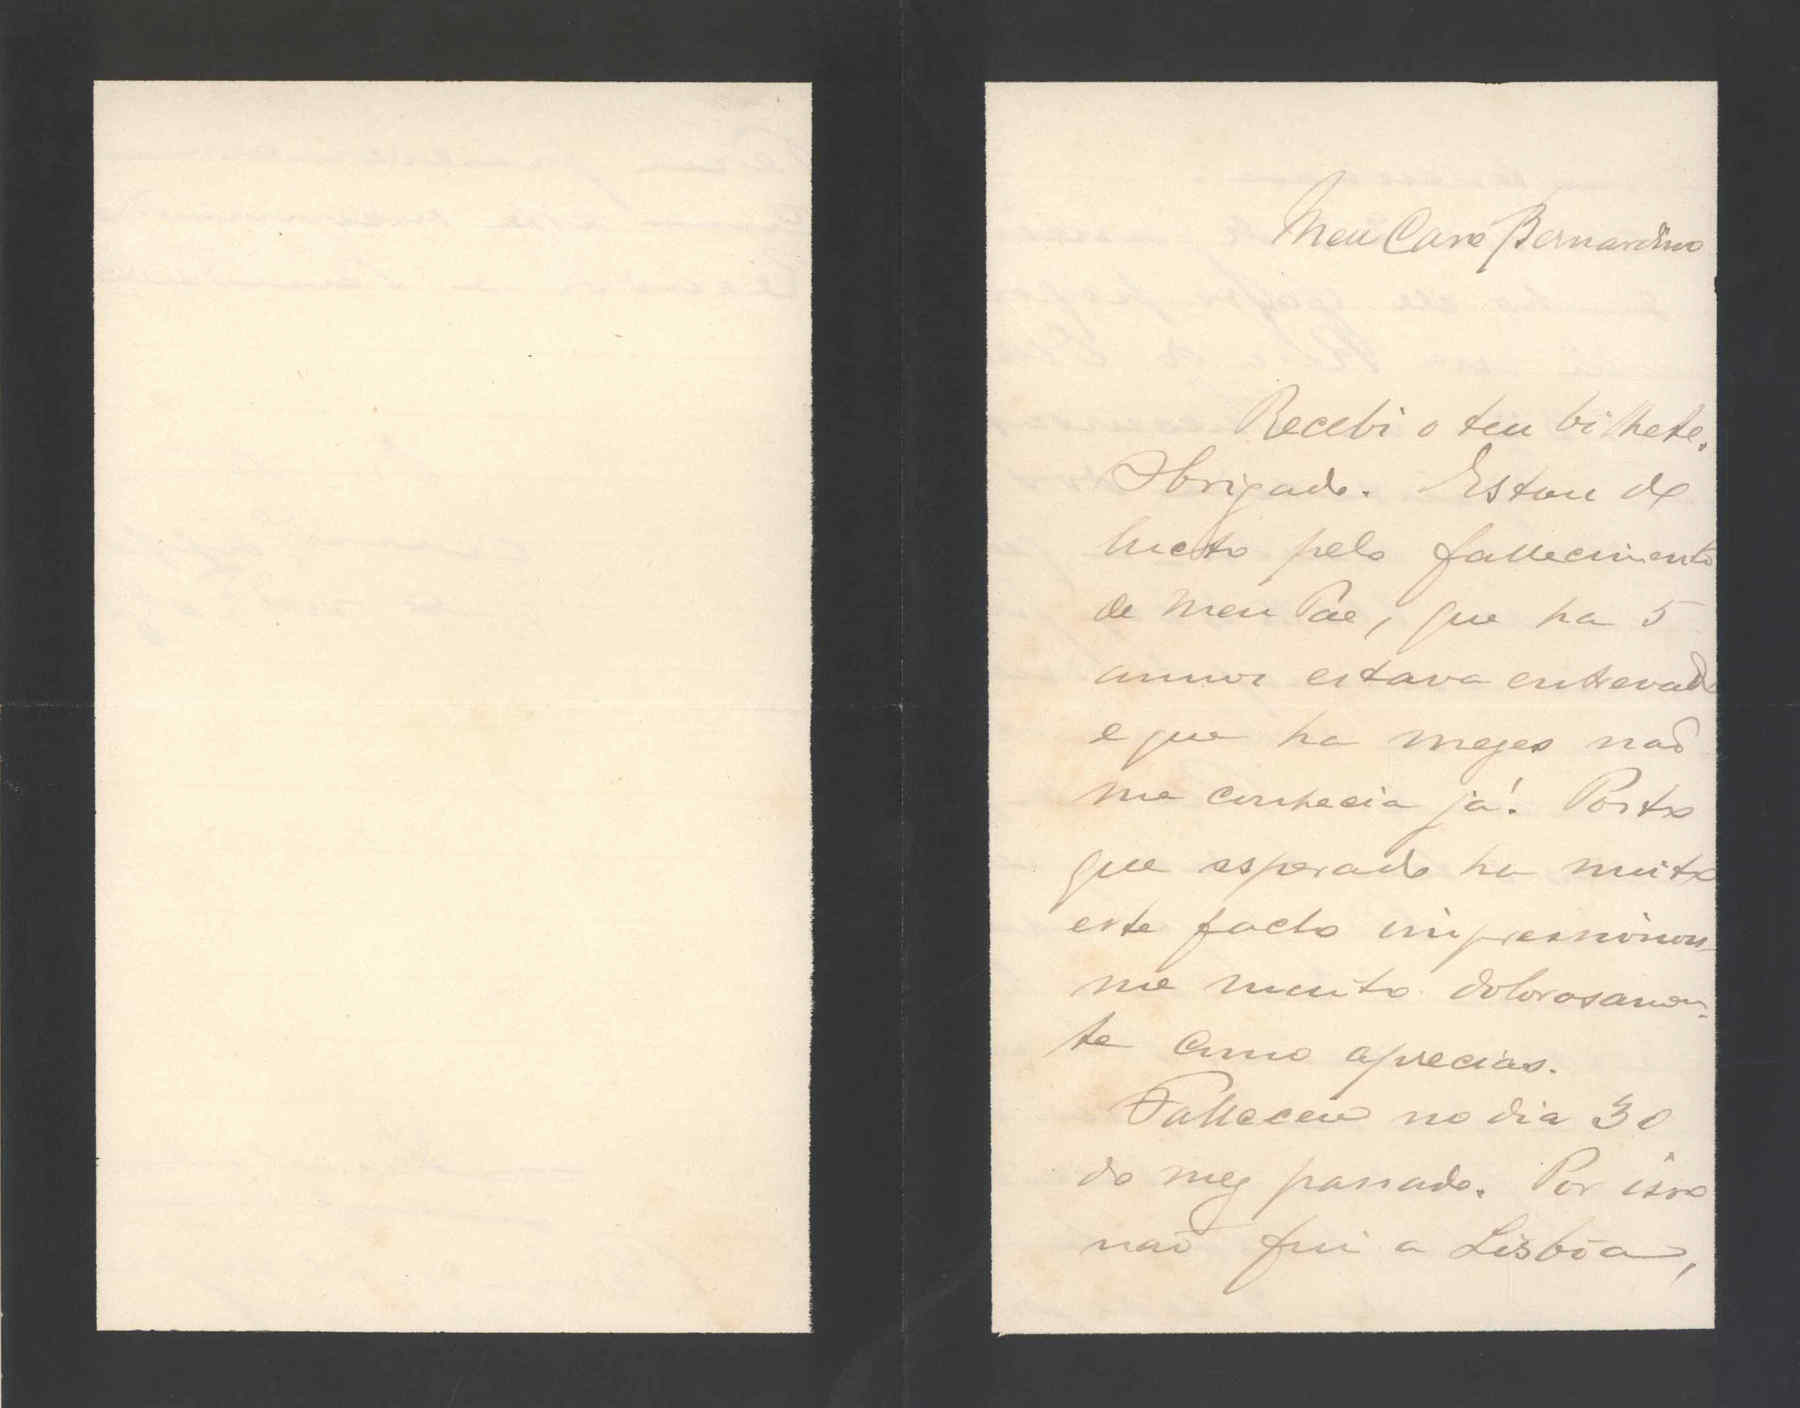 Meu Caro Bernardino
Recebi o teu bilhete.
Obrigado. Estou de
lucto pelo fallecimento
de meu Pae, que ha 5
annos estava entrevado
e que ha mezes não
me conhecia já! Posto
que esperado ha muito
este facto impressionou-
me muito dolorosamen-
te como aprecias.
Falleceu no dia 30
do mez passado. Por isso
não fui a Lisbôa,